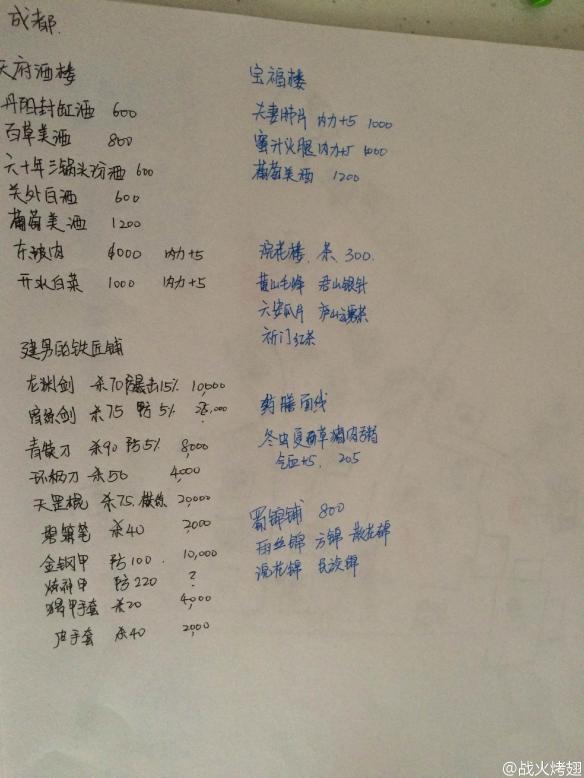 成都.
天府酒楼
丹阳封缸酒 600
百草美酒 800
六十年二锅头汾酒 600
关外白酒 600
葡萄美酒 1200
东坡肉 4000 内力+5
开水白菜 1000 内力+5
建男的铁匠铺
龙渊剑 杀70 爆击15% 10,000
剑 杀75 防5%
青锬刀 杀90 防5% 8000
环柄刀 杀50 4,000
天罡棍 杀75. 20,000
碧箫笔 杀40 2,000
金钢甲 防100. 10,000
炼神甲 防220 ?
猬甲手套 杀20 4,000
皮手套 杀40 2,000
宝福楼
夫妻肺片 内力+5 1000
蜜汁火腿 内力+5 1000
葡萄美酒 1200
浣花楼. 茶 300.
黄山毛峰 君山银针
六安瓜片 庐山云雾茶
祁门红茶
药膳面线
冬虫夏草猪肉粥
气血+5. 205
蜀锦铺 800
雨丝锦 方锦 散花锦
浣花锦 民族锦
@战火烤翅